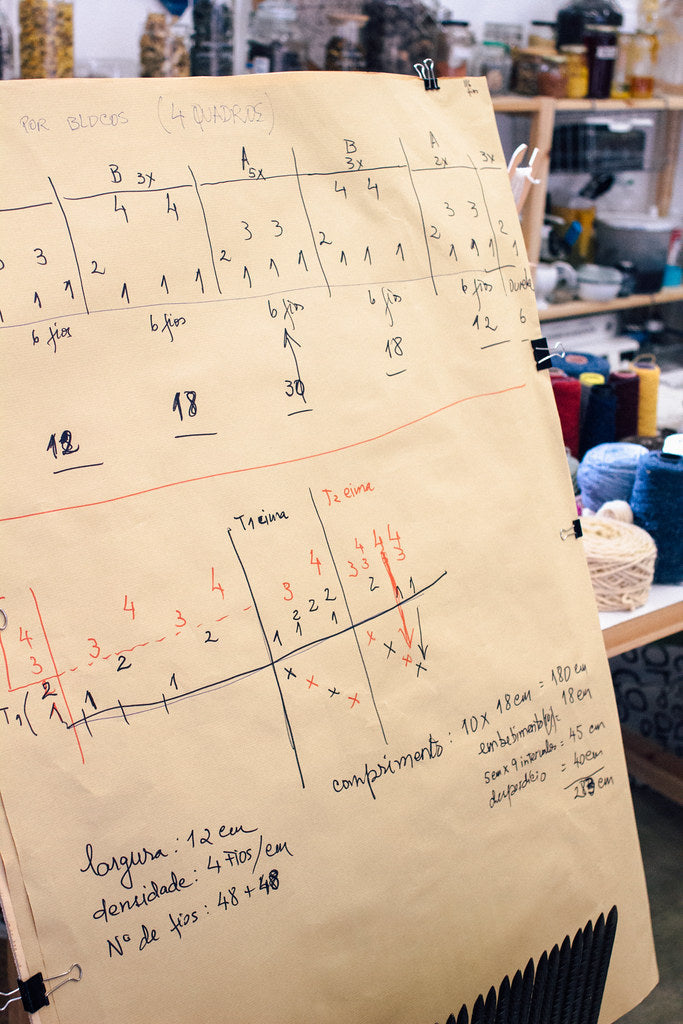 POR BLOCOS (4 QUADROS)
B 3x A 5x B 3x A 2x 3x
4 4 4 4
3 3 3 3 3
2 2 2 2 2
1 1 1 1 1 1 1 1 1 1 1 1 1 1 1
6 fios 6 fios 6 fios 6 fios 6 fios
12 18 30 18 12 6
T1 cima T2 cima
4 4 4 4 4 4 4
3 3 3 3 3 3 3
2 2 2 2 2 2 2
T1 ( 1 1 1 1 1 1 1 1
x x x x x x x x
comprimento: 10 x 18 cm = 180 cm
embebimento = 18 cm
5 cm x 9 intervalos = 45 cm
desperdício = 40 cm
283 cm
largura: 12 cm
densidade: 4 FIOS/cm
Nº de fios: 48 + 48